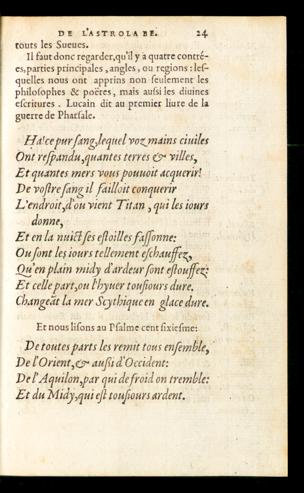 DE L'ASTROLABE. 24
touts les Sueues.
Il faut donc regarder, qu'il y a quatre contré-
es, parties principales, angles, ou regions: les-
quelles nous ont apprins non seulement les
philosophes & poëtes, mais aussi les diuines
escritures. Lucain dit au premier liure de la
guerre de Pharsale.
Ha! ce pur sang, lequel voz mains ciuiles
Ont respandu, quantes terres & villes,
Et quantes mers vous pouuoit acquerir!
De vostre sang il failloit conquerir
L'endroit, d'ou vient Titan, qui les iours
donne,
Et en la nuict ses estoilles fassonne:
Ou sont les iours tellement eschauffez,
Qu'en plain midy d'ardeur sont estouffez:
Et celle part, ou l'hyuer tousiours dure.
Changeāt la mer Scythique en glace dure.
Et nous lisons au Psalme cent sixiesme:
De toutes parts les remit tous ensemble,
De l'Orient, & aussi d'Occident:
De l'Aquilon, par qui de froid on tremble:
Et du Midy, qui est tousiours ardent.